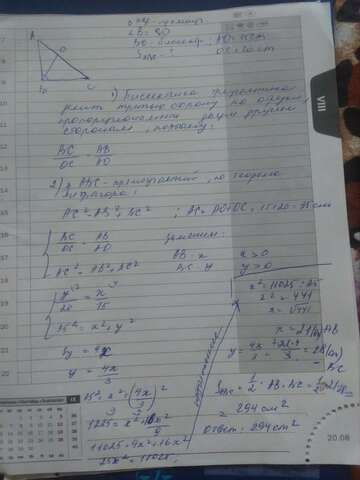 ∠B = 90
BO - биссектр., AO = 15 см
OC = 20 см
S ABC - ?
VIII
1) Биссектриса треугольника
делит третью сторону на отрезки,
пропорциональные двум другим
сторонам, поэтому:
BC/OC = AB/AO
2) ABC - прямоугольный, по теореме
Пифагора:
AC² = AB² + BC² ; AC = AO + OC = 15 + 20 = 35 см
BC/OC = AB/AO
AC² = AB² + BC²
заменим:
AB - x   x > 0
BC - y   y > 0
y/20 = x/15
35² = x² + y²
3y = 4x
y = 4x/3
35² = x² + (4x/3)²
1225 = x² + 16x²/9
11025 = 9x² + 16x²
25x² = 11025
x² = 11025 : 25
x² = 441
x = √441
x = 21 (см) AB
= 28 (см)
BC
S ABC = 1/2 · AB · BC =
= 294 см²
Ответ: 294 см²
20.08